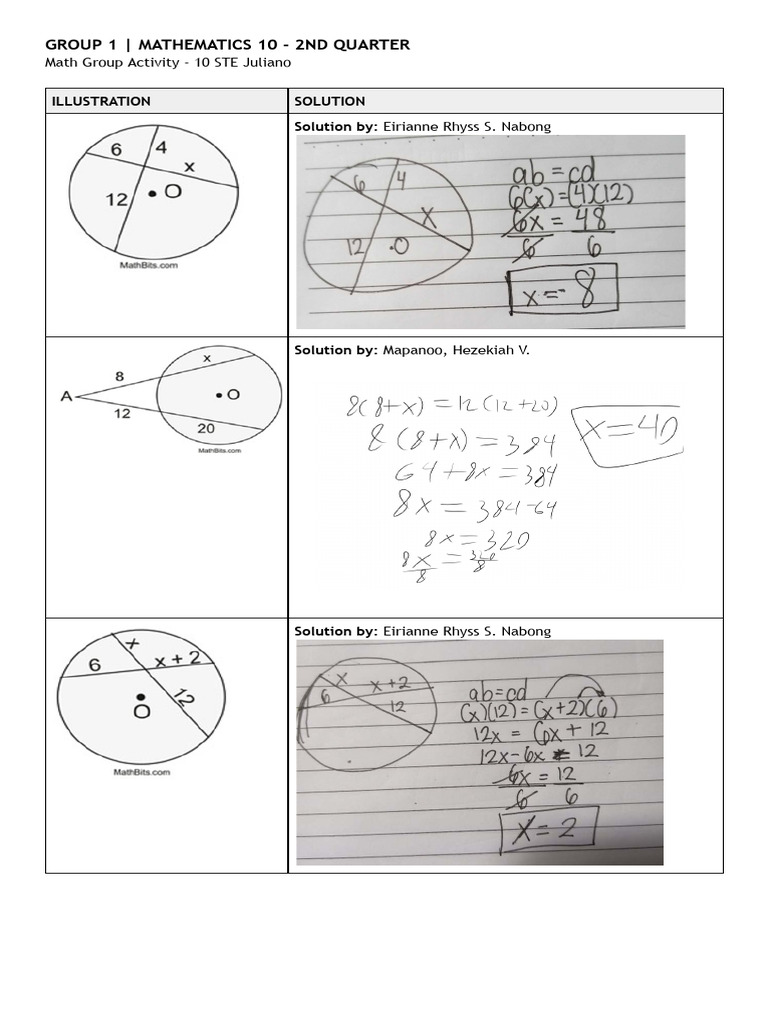 GROUP 1 | MATHEMATICS 10 - 2ND QUARTER
Math Group Activity - 10 STE Juliano
ILLUSTRATION
SOLUTION
6
4
x
12
O
MathBits.com
Solution by: Eirianne Rhyss S. Nabong
6
4
x
12
O
ab = cd
6(x) = (4)(12)
6x = 48
6 6
x = 8
A
8
x
12
20
O
MathBits.com
Solution by: Mapanoo, Hezekiah V.
8(8+x) = 12(12+20)
8(8+x) = 384
64+8x = 384
8x = 384-64
8x = 320
8x = 320
8 8
x = 40
6
x
x + 2
12
O
MathBits.com
Solution by: Eirianne Rhyss S. Nabong
6
x
x+2
12
ab=cd
(x)(12) = (x+2)(6)
12x = 6x + 12
12x-6x = 12
6x = 12
6 6
x = 2